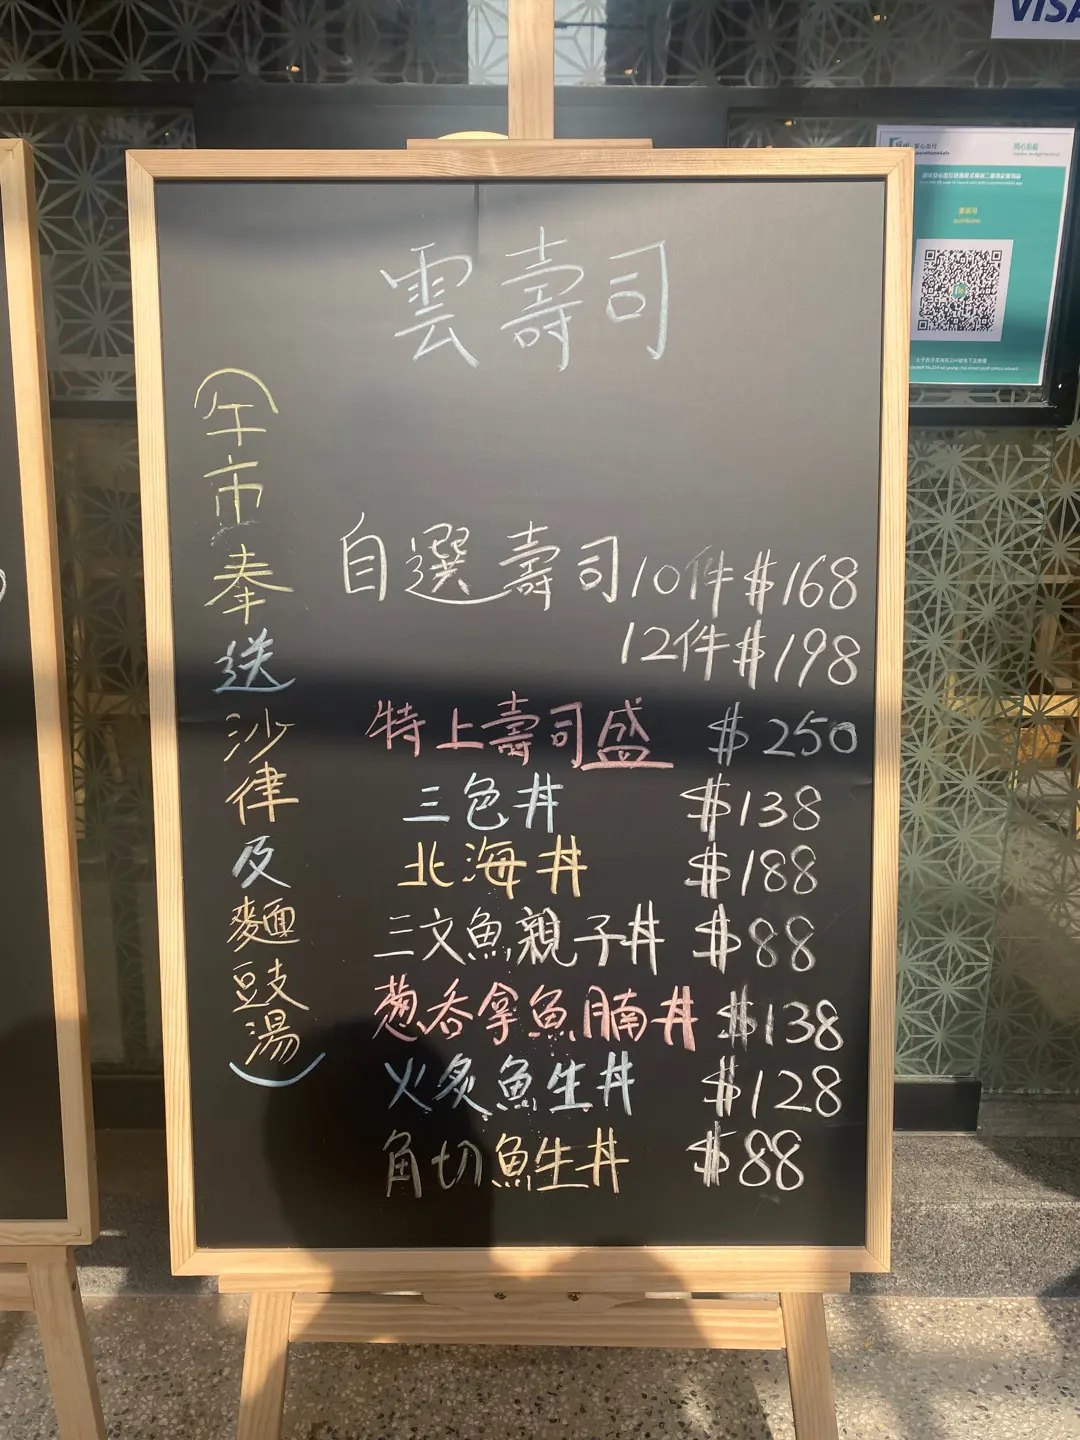 VISA
雲壽司
(午市奉送沙律及麵豉湯)
自選壽司10件$168
12件$198
特上壽司盛 $250
三色丼 $138
北海丼 $188
三文魚親子丼 $88
葱吞拿魚腩丼 $138
火炙魚生丼 $128
角切魚生丼 $88